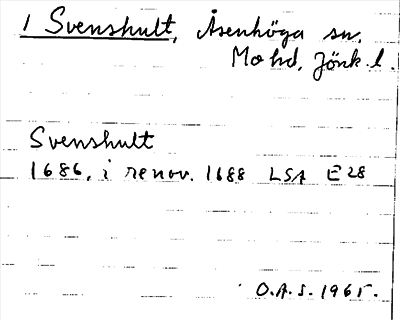 1 Svenshult, Åsenhöga sn.
Mo hd, Jönk. l.
Svenshult
1686, i renov. 1688 LSA E28
O.A.S. 1965.